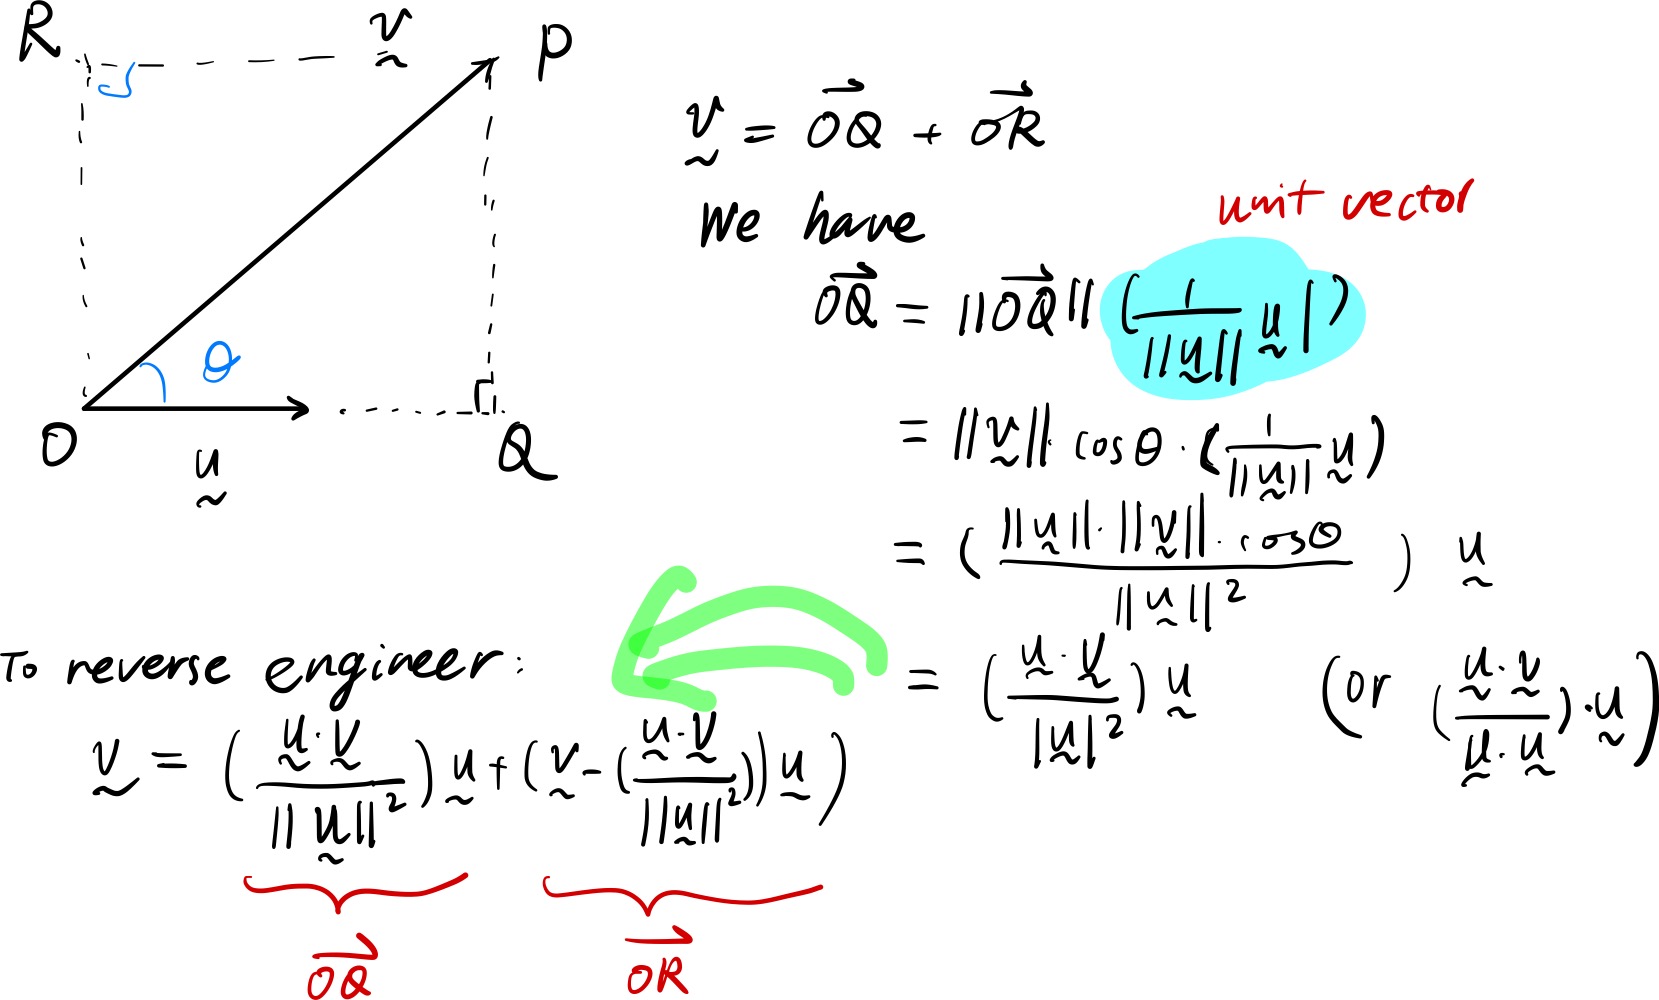 R
v
P
θ
O
u
Q
v = OQ + OR
We have
unit vector
OQ = ||OQ|| (1/||u|| u|)
= ||v|| · cosθ · (1/||u|| u)
= (||u|| · ||v|| · cosθ / ||u||²) u
= (u · v / |u|²) u (or (u · v / u · u) · u)
To reverse engineer:
v = (u · v / ||u||²) u + (v - (u · v / ||u||²)) u)
OQ
OR